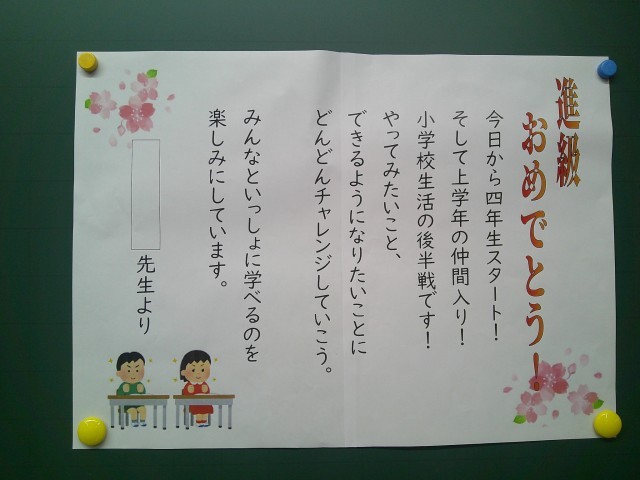 進級
おめでとう!
今日から四年生スタート!
そして上学年の仲間入り!
小学校生活の後半戦です!
やってみたいこと、
できるようになりたいことに
どんどんチャレンジしていこう。
みんなといっしょに学べるのを
楽しみにしています。
先生より